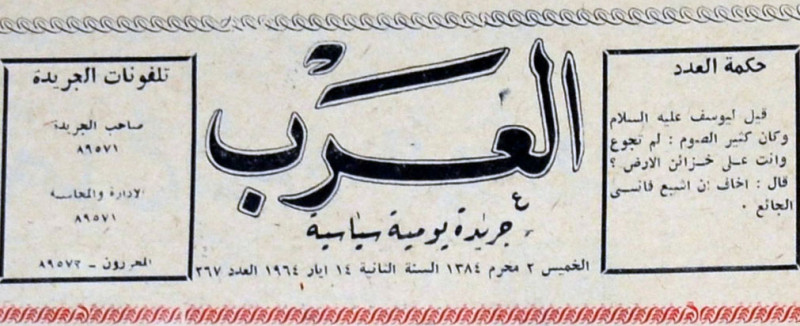 حكمة العدد
قيل ليوسف عليه السلام
وكان كثير الصوم : لم تجوع
وانت على خزائن الارض ؟
قال : اخاف ان اشبع فانسى
الجائع .
العرب
جريدة يومية سياسية
الخميس ٢ محرم ١٣٨٤ السنة الثانية ١٤ ايار ١٩٦٤ العدد ٢٦٧
تلفونات الجريدة
صاحب الجريدة
٨٩٥٧١
الادارة والمحاسبة
٨٩٥٧١
المحررون - ٨٩٥٧٢